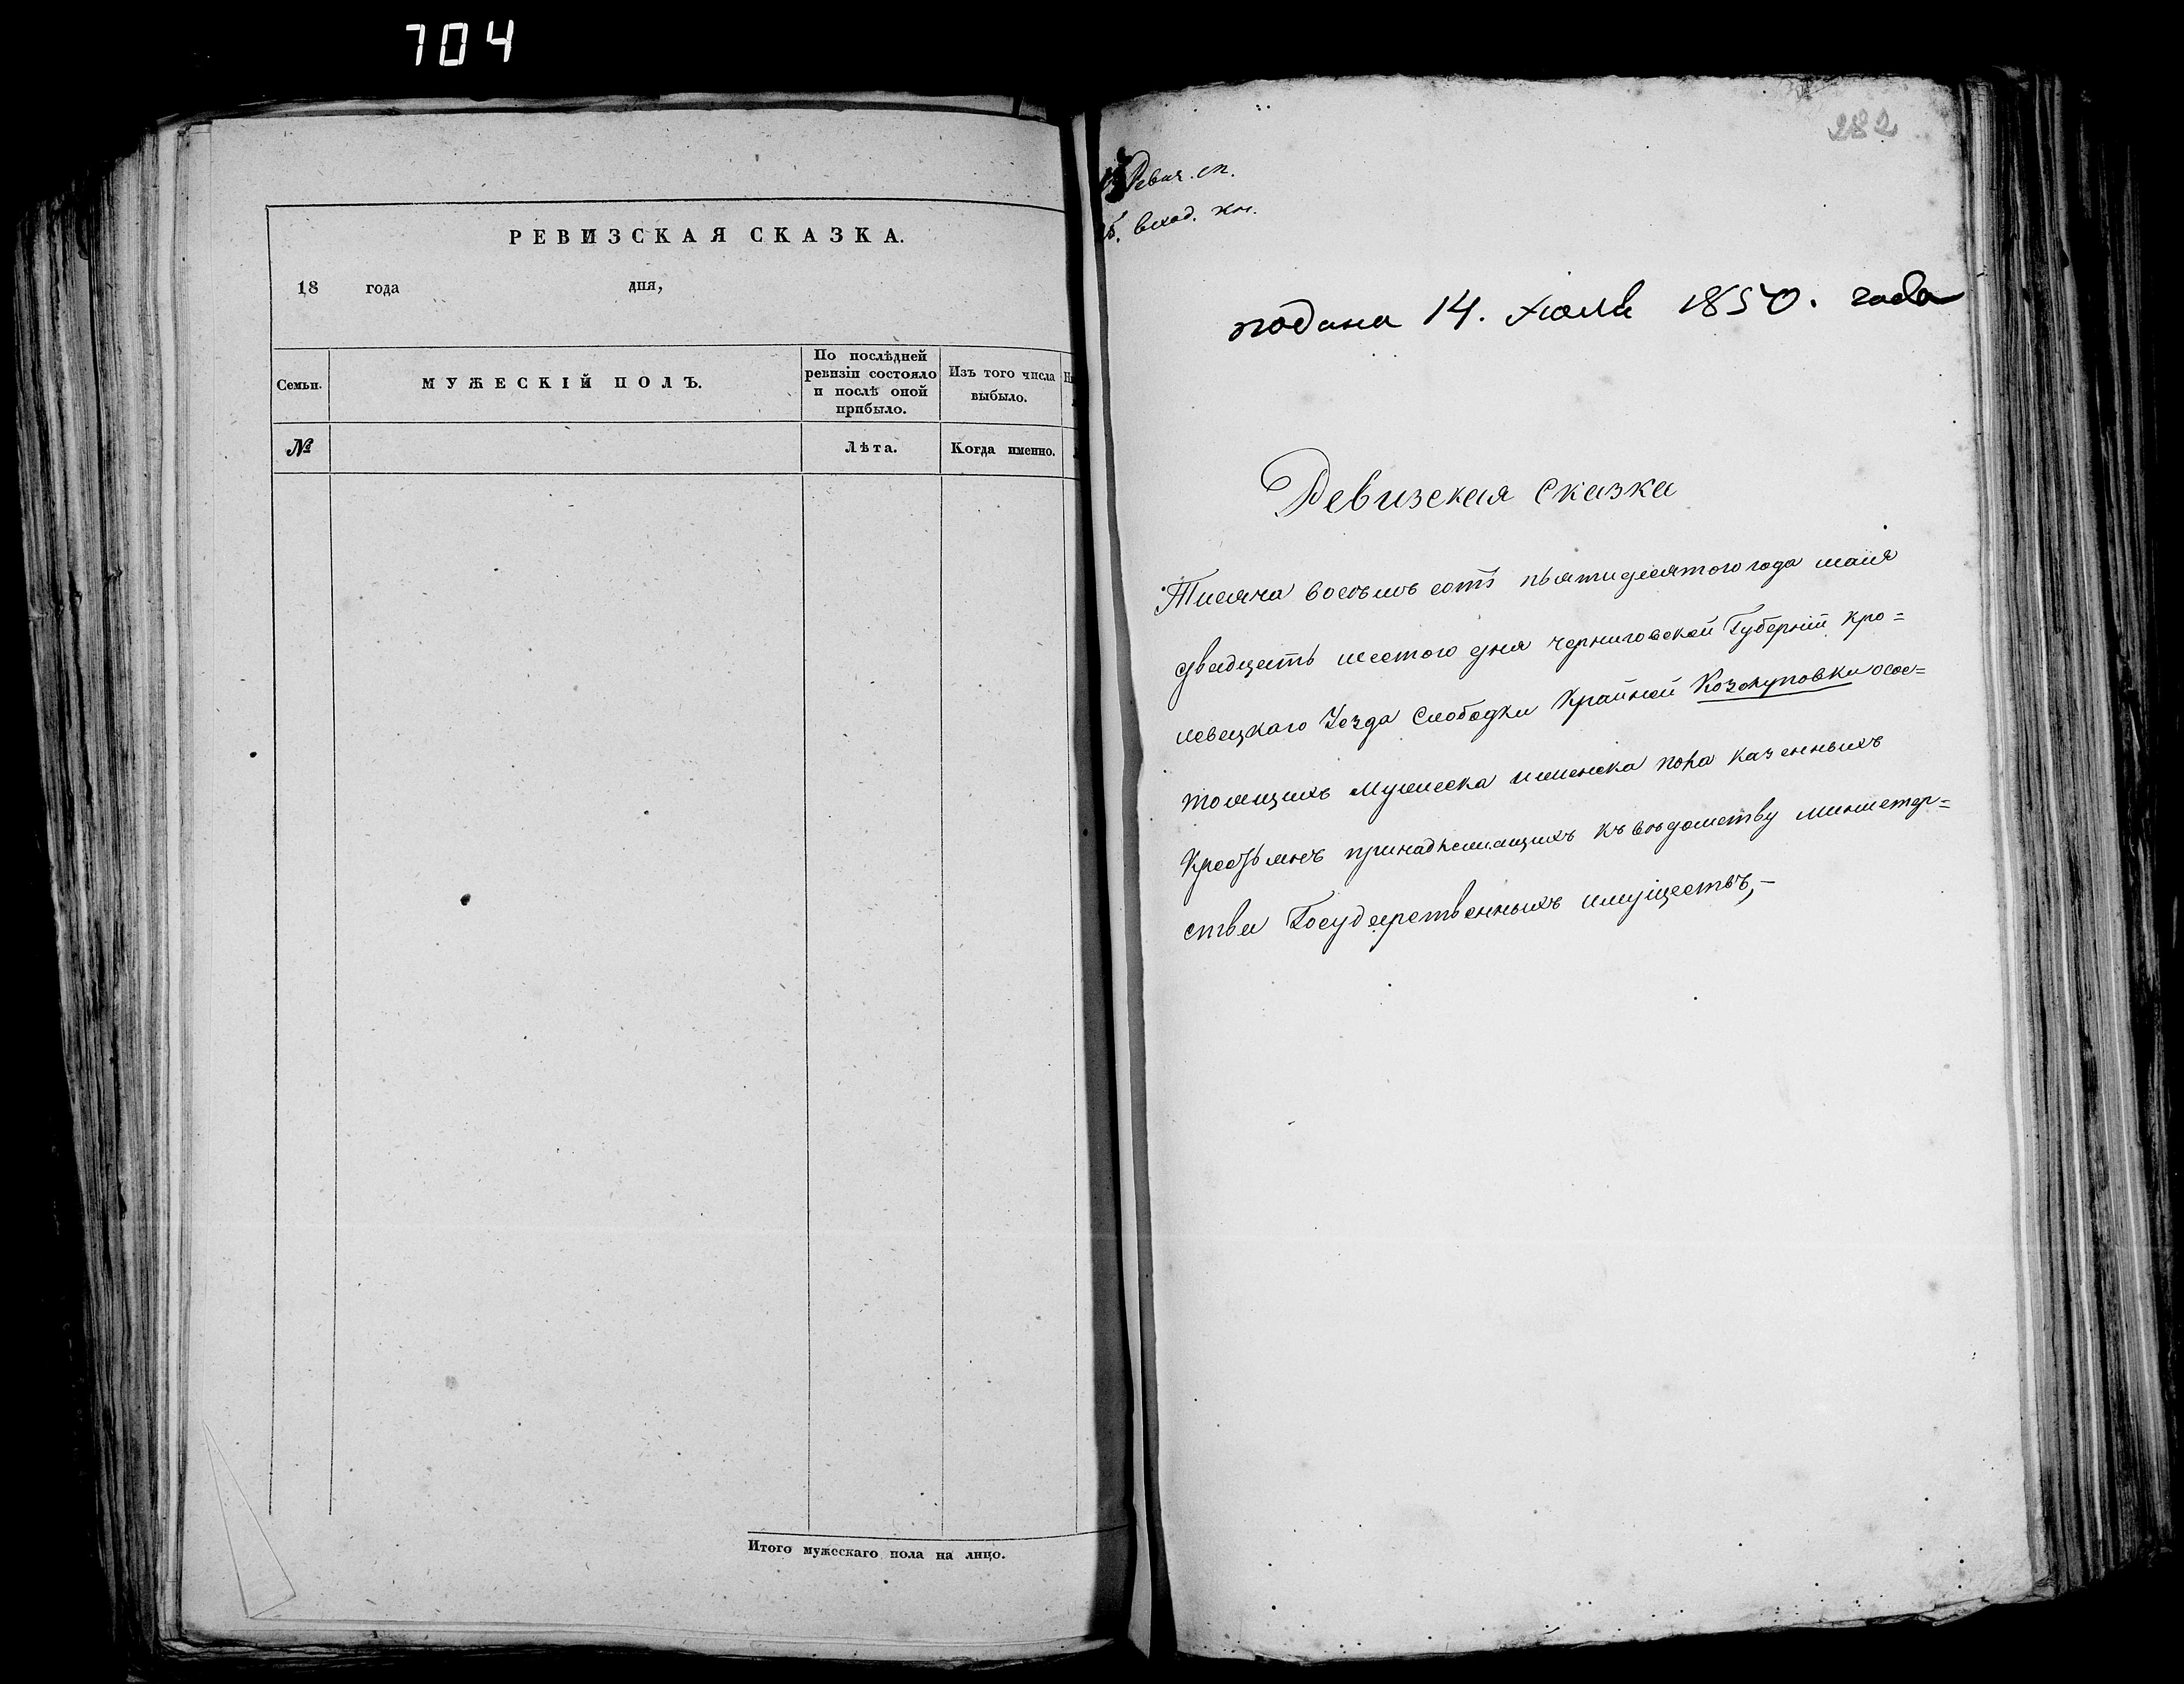 704
РЕВИЗСКАЯ СКАЗКА.
18 года дня,
Семьи.
МУЖЕСКІЙ ПОЛЪ.
По послѣдней
ревизіи состояло
и послѣ оной
прибыло.
Изъ того числа
выбыло.
№
Лѣта.
Когда именно.
Итого мужескаго пола на лицо.
282
Ревиз. ск.
вход. кн.
подана 14. Іюля 1850. года
Ревизская Сказка
Тисяча восѣмъ сотъ пьятидесятого года маія
двадцать шестого дня черниговской Губерніи кро=
левецкаго Уезда Слободки Крайней Козолуповки осос=
тоящихъ Мужеска иженска пола казенныхъ
Крестьянъ принадлежащихъ къ вѣдомству министер=
ства Государственныхъ имуществъ,-